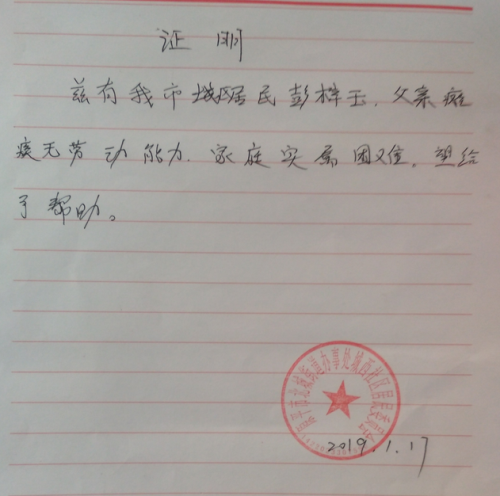 证明
兹有我市城区居民彭梓玉，父亲瘫
痪无劳动能力．家庭实属困难，望给
予帮助。
2019.1.17